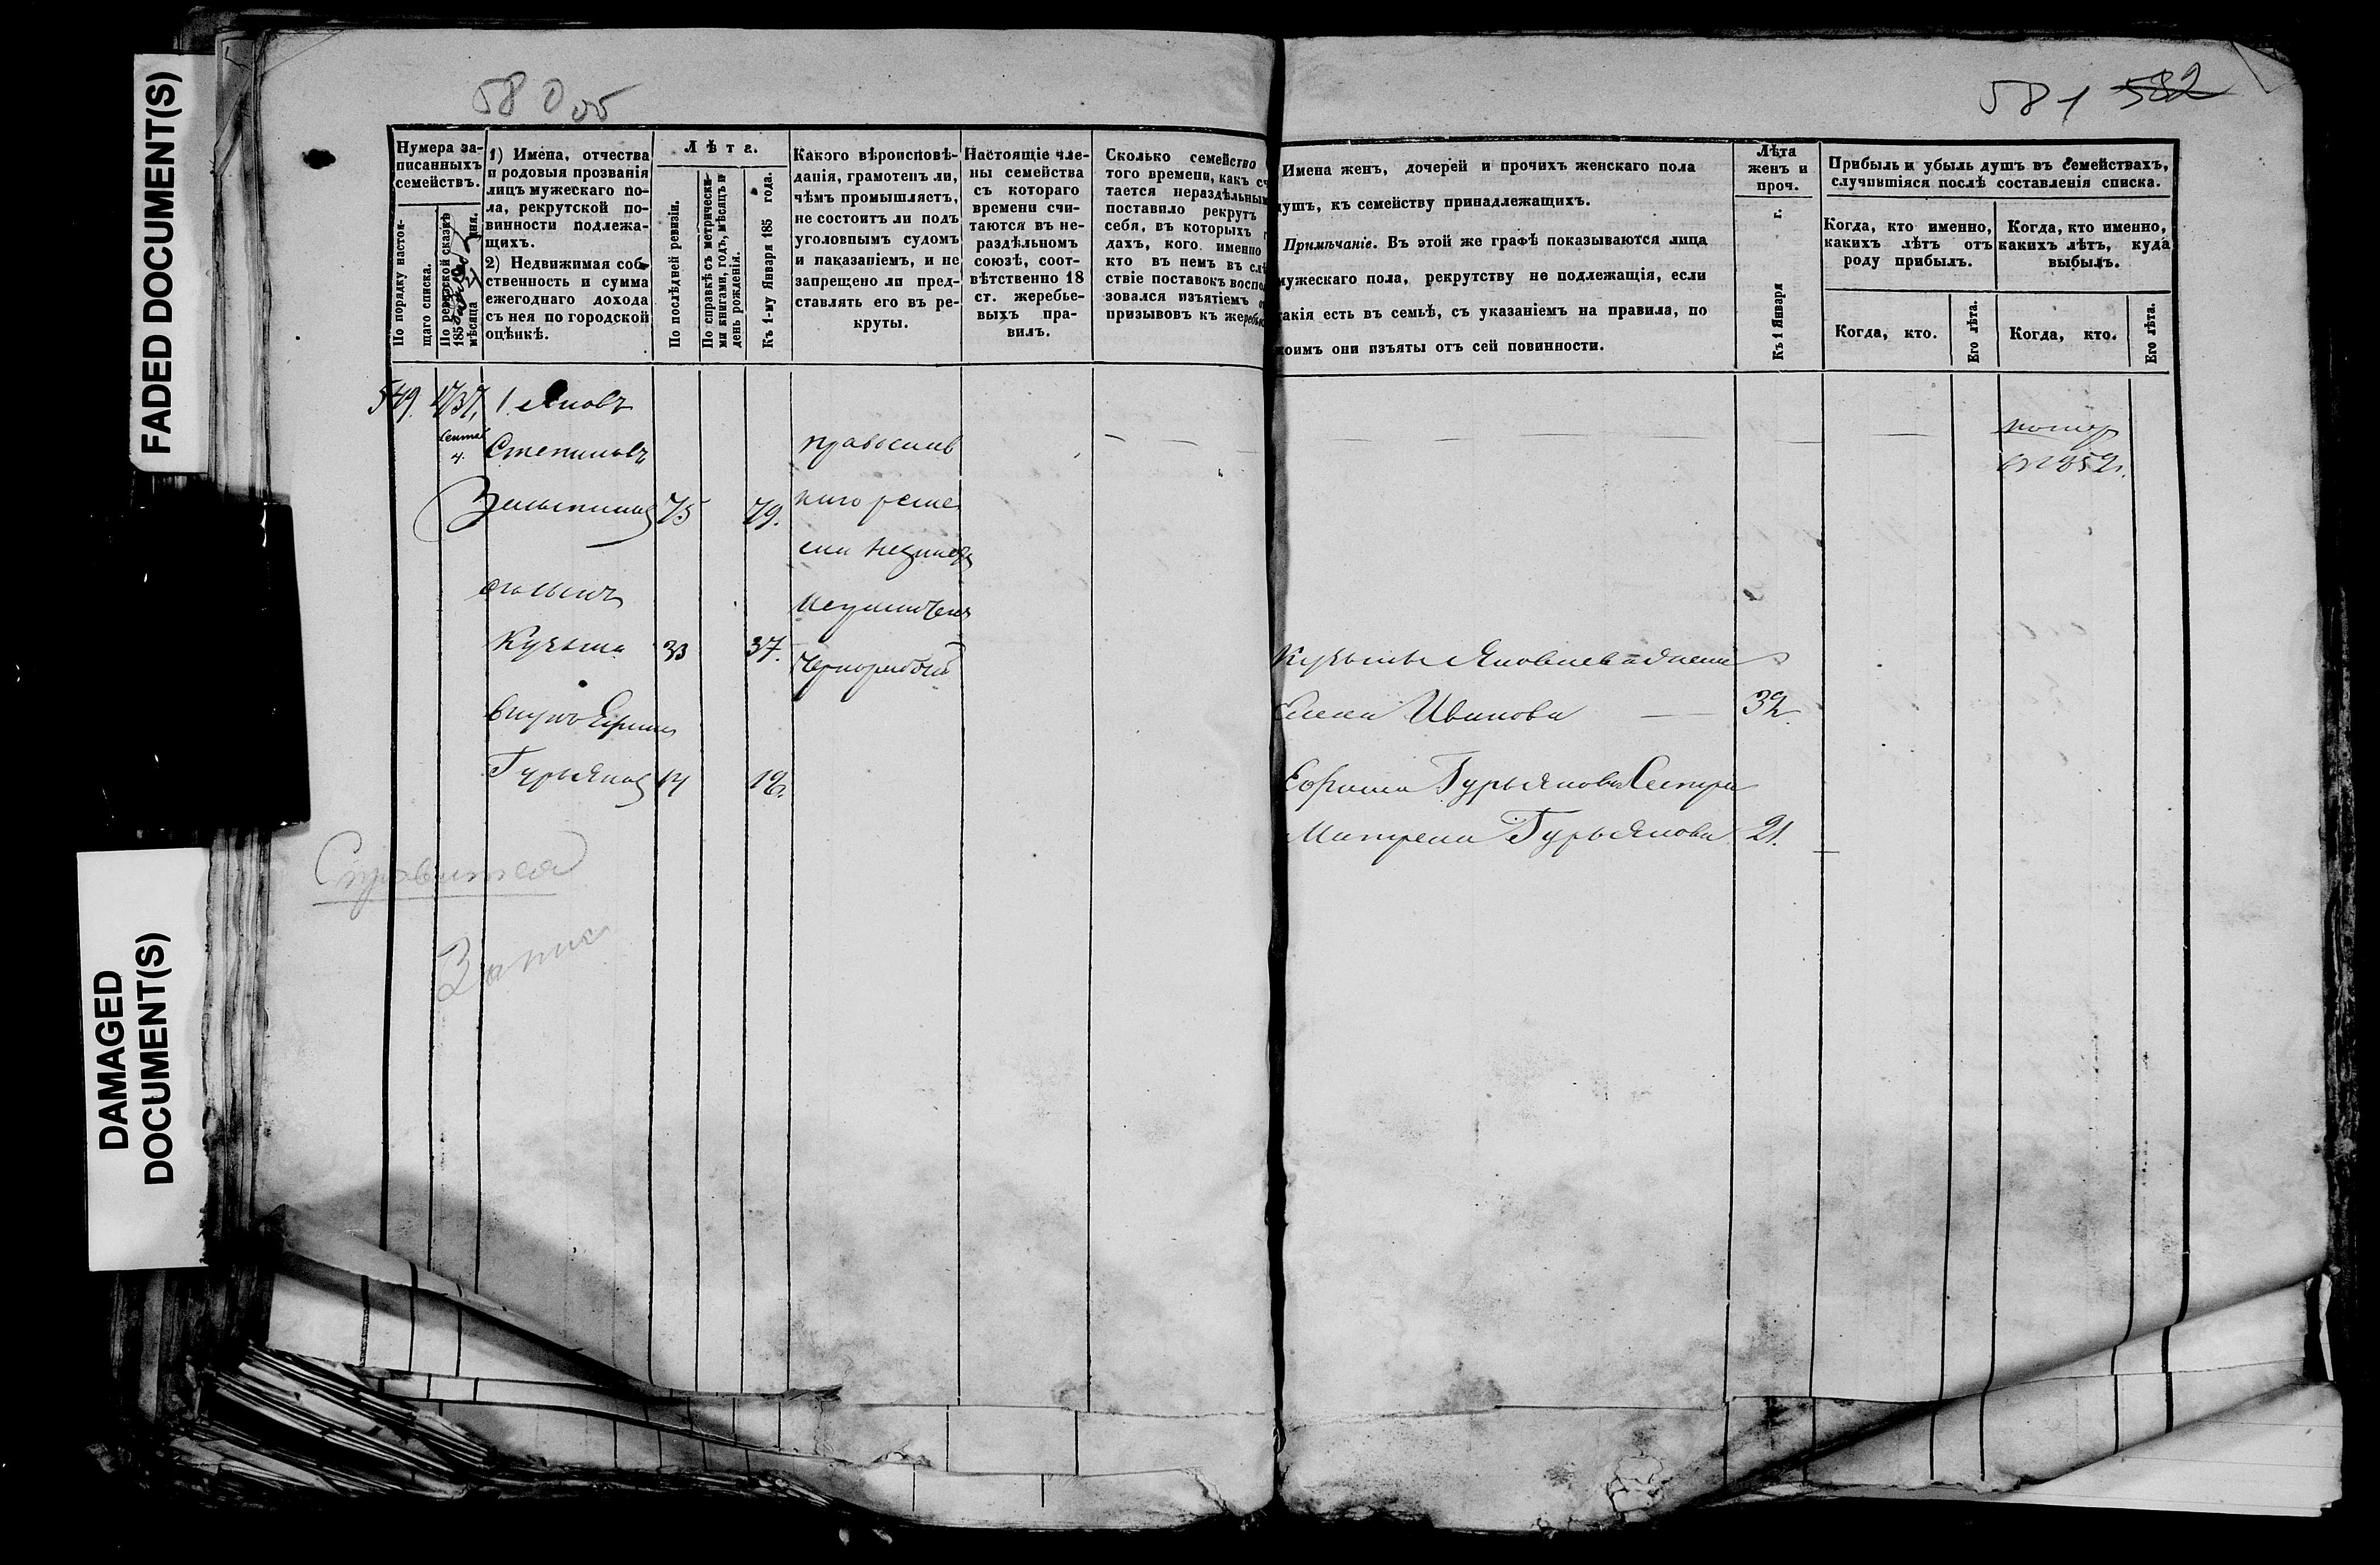 FADED DOCUMENT(S)
DAMAGED
DOCUMENT(S)
580 об
Нумера за-
писанныхъ
семействъ.
По порядку настоя-
щаго списка.
По ревизской сказкѣ
185
мѣсяца дня.
1) Имена, отчества
и родовыя прозванія
лицъ мужескаго по-
ла, рекрутской по-
винности подлежа-
щихъ.
2) Недвижимая соб-
ственность и сумма
ежегоднаго дохода
съ нея по городской
оцѣнкѣ.
Лѣта.
По послѣдней ревизіи.
По справкѣ съ метрически-
ми книгами, годъ, мѣсяцъ и
день рожденія.
Къ 1-му Января 185 года.
Какого вѣроисповѣ-
данія, грамотенъ ли,
чѣмъ промышляетъ,
не состоитъ ли подъ
уголовнымъ судомъ
и наказаніемъ, и не
запрещено ли пред-
ставлять его въ ре-
круты.
Настоящіе чле-
ны семейства
съ котораго
времени счи-
таются въ не-
раздѣльномъ
союзѣ, соот-
вѣтственно 18
ст. жеребье-
выхъ пра-
вилъ.
Сколько семейство
того времени, какъ сч
тается нераздѣльным
поставило рекрутъ
себя, въ которыхъ г
дахъ, кого именно
кто въ немъ въ слѣ
ствіе поставокъ воспо
зовался изъятіемъ о
призывовъ къ жеребью
549. 1737. 1. Яковъ
Сентяб
4. Степановъ
75 79.
его сынъ
Кузьма 33 37.
внукъ Ефимъ
Гурьяновъ 14 18.
православ
наго
Справится
Запис
581 582
Имена женъ, дочерей и прочихъ женскаго пола
душъ, къ семейству принадлежащихъ.
Примѣчаніе. Въ этой же графѣ показываются лица
мужескаго пола, рекрутству не подлежащія, если
такія есть въ семьѣ, съ указаніемъ на правила, по
коимъ они изъяты отъ сей повинности.
Лѣта
женъ и
проч.
Къ 1 Января г.
Прибыль и убыль душъ въ семействахъ,
случившіяся послѣ составленія списка.
Когда, кто именно,
какихъ лѣтъ отъ
роду прибылъ.
Когда, кто именно,
какихъ лѣтъ, куда
выбылъ.
Когда, кто.
Его лѣта.
Когда, кто.
Его лѣта.
помер
в 1852.
Кузьмы Яковлева жена
Елена Иванова 32.
Ефима Гурьянова Сестра
Матрена Гурьянова 21.